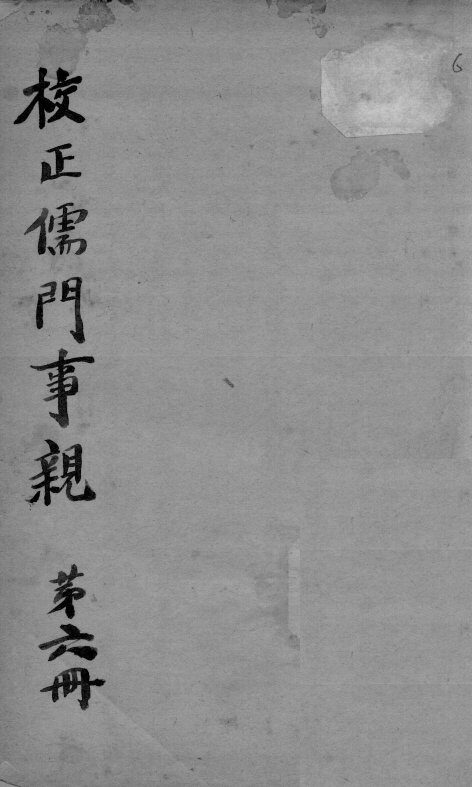 校正儒門事親 第六冊
6